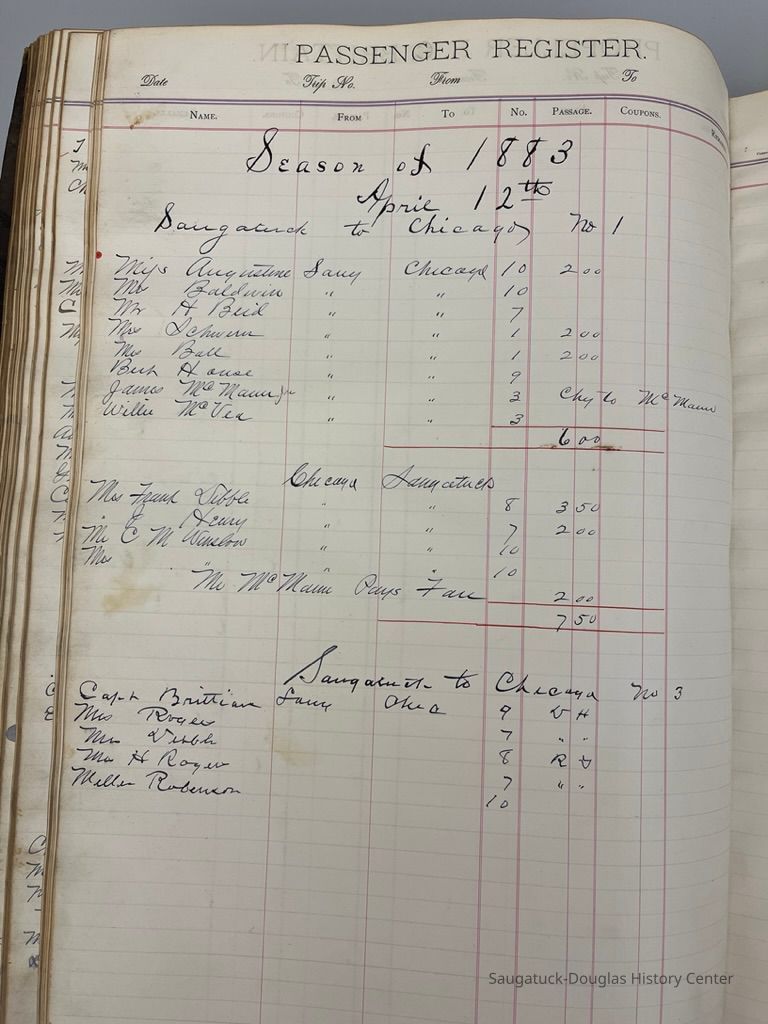 PASSENGER REGISTER.
Date Trip No. From To
NAME. FROM TO No. PASSAGE. COUPONS.
Season of 1883
April 12th
Saugatuck to Chicago No 1
Miss Augustine Saug Chicago 10 2 00
Mr Baldwin " " 10
Mr H Reid " " 7
Mrs Schwern " " 1 2 00
Mrs Ball " " 1 2 00
Bert House " " 9
James McMann Jr " " 3 Chg to McMann
Willie McVea " " 3
6 00
Chicago Saugatuck
Mrs Frank Dibble " " 8 3 50
" Henry " " 7 2 00
Mr C M Winslow " " 10
Mrs " " 10
Mr McMann Pays Fare 2 00
7 50
Saugatuck to Chicago No 3
Capt Brittian Saug Chic 9 D H
Mrs Rogers 7 " "
Mrs Dibble 8 R
Mrs H Rogers 7 " "
Miller Robenson 10
Saugatuck-Douglas History Center